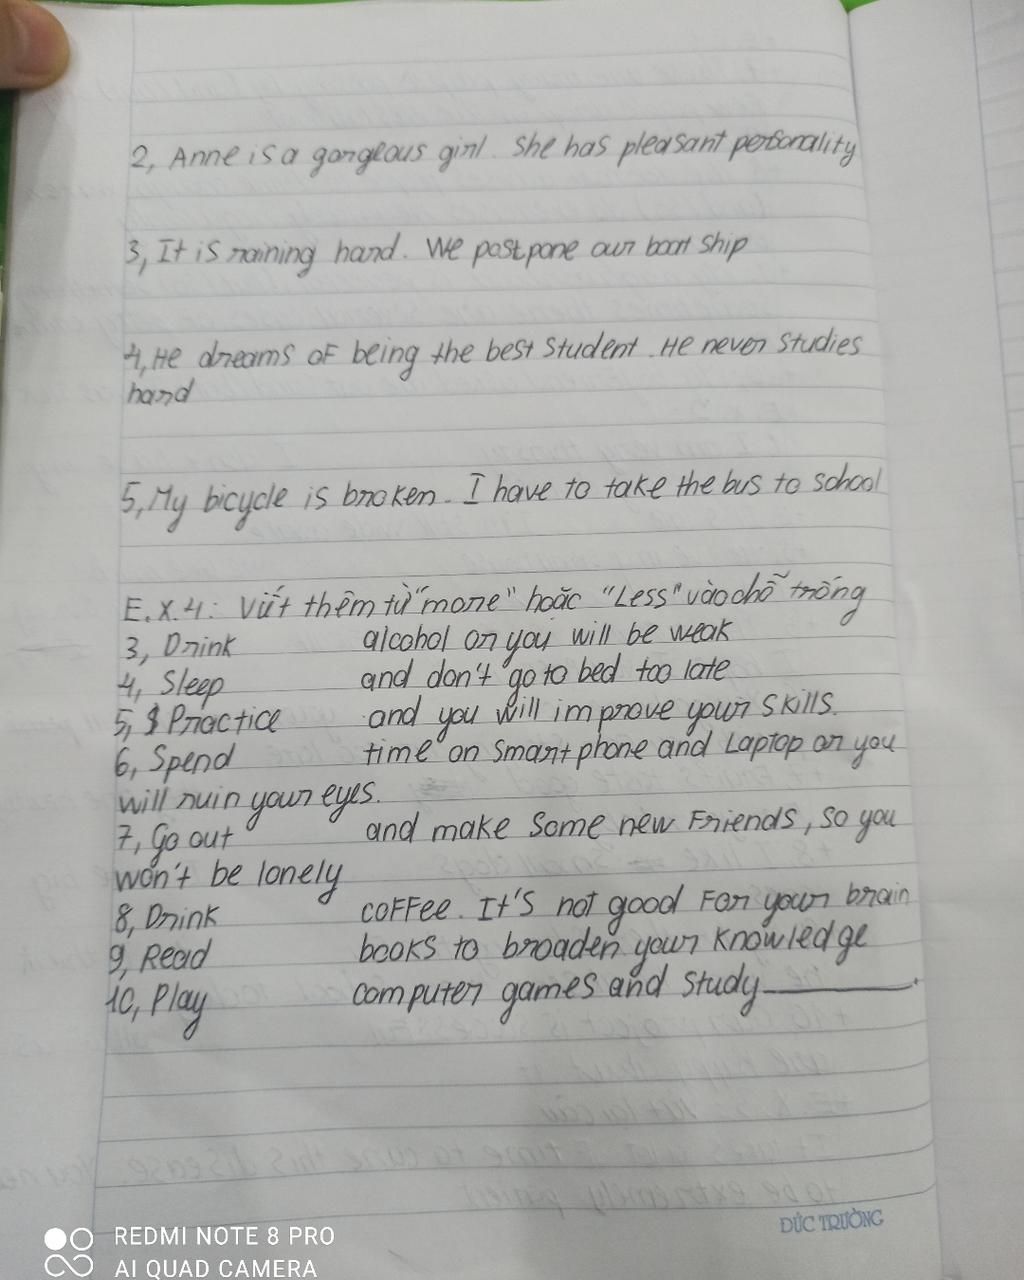 2, Anne is a gorgeous girl. She has pleasant personality
3, It is raining hard. We postpone our boat ship
4, He dreams of being the best student. He never studies
hard
5, My bicycle is broken. I have to take the bus to school
E.x.4: Viết thêm từ "more" hoặc "Less" vào chỗ trống
3, Drink alcohol or you will be weak
4, Sleep and don't go to bed too late
5, Practice and you will improve your skills.
6, Spend time on smartphone and Laptop or you
will ruin your eyes.
7, Go out and make some new Friends, so you
won't be lonely
8, Drink coffee. It's not good For your brain
9, Read books to broaden your knowledge
10, Play computer games and study ________.
ĐỨC TRƯỜNG
REDMI NOTE 8 PRO
AI QUAD CAMERA